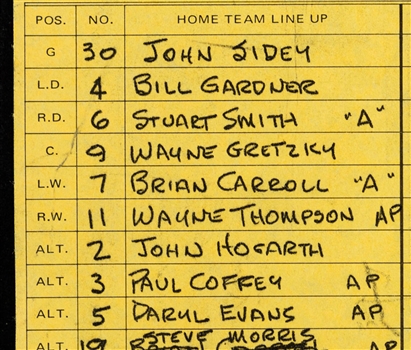 POS. NO. HOME TEAM LINE UP
G 30 JOHN SIDEY
L.D. 4 BILL GARDNER
R.D. 6 STUART SMITH "A"
C. 9 WAYNE GRETZKY
L.W. 7 BRIAN CARROLL "A"
R.W. 11 WAYNE THOMPSON AP
ALT. 2 JOHN HOGARTH
ALT. 3 PAUL COFFEY AP
ALT. 5 DARYL EVANS AP
ALT. 19 STEVE MORRIS AP